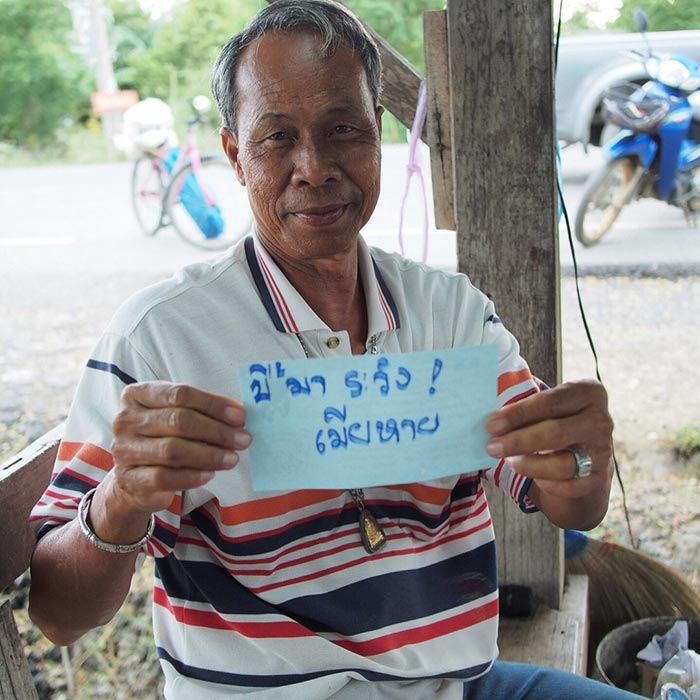 ขี้เมา ระวัง!
เมียหาย